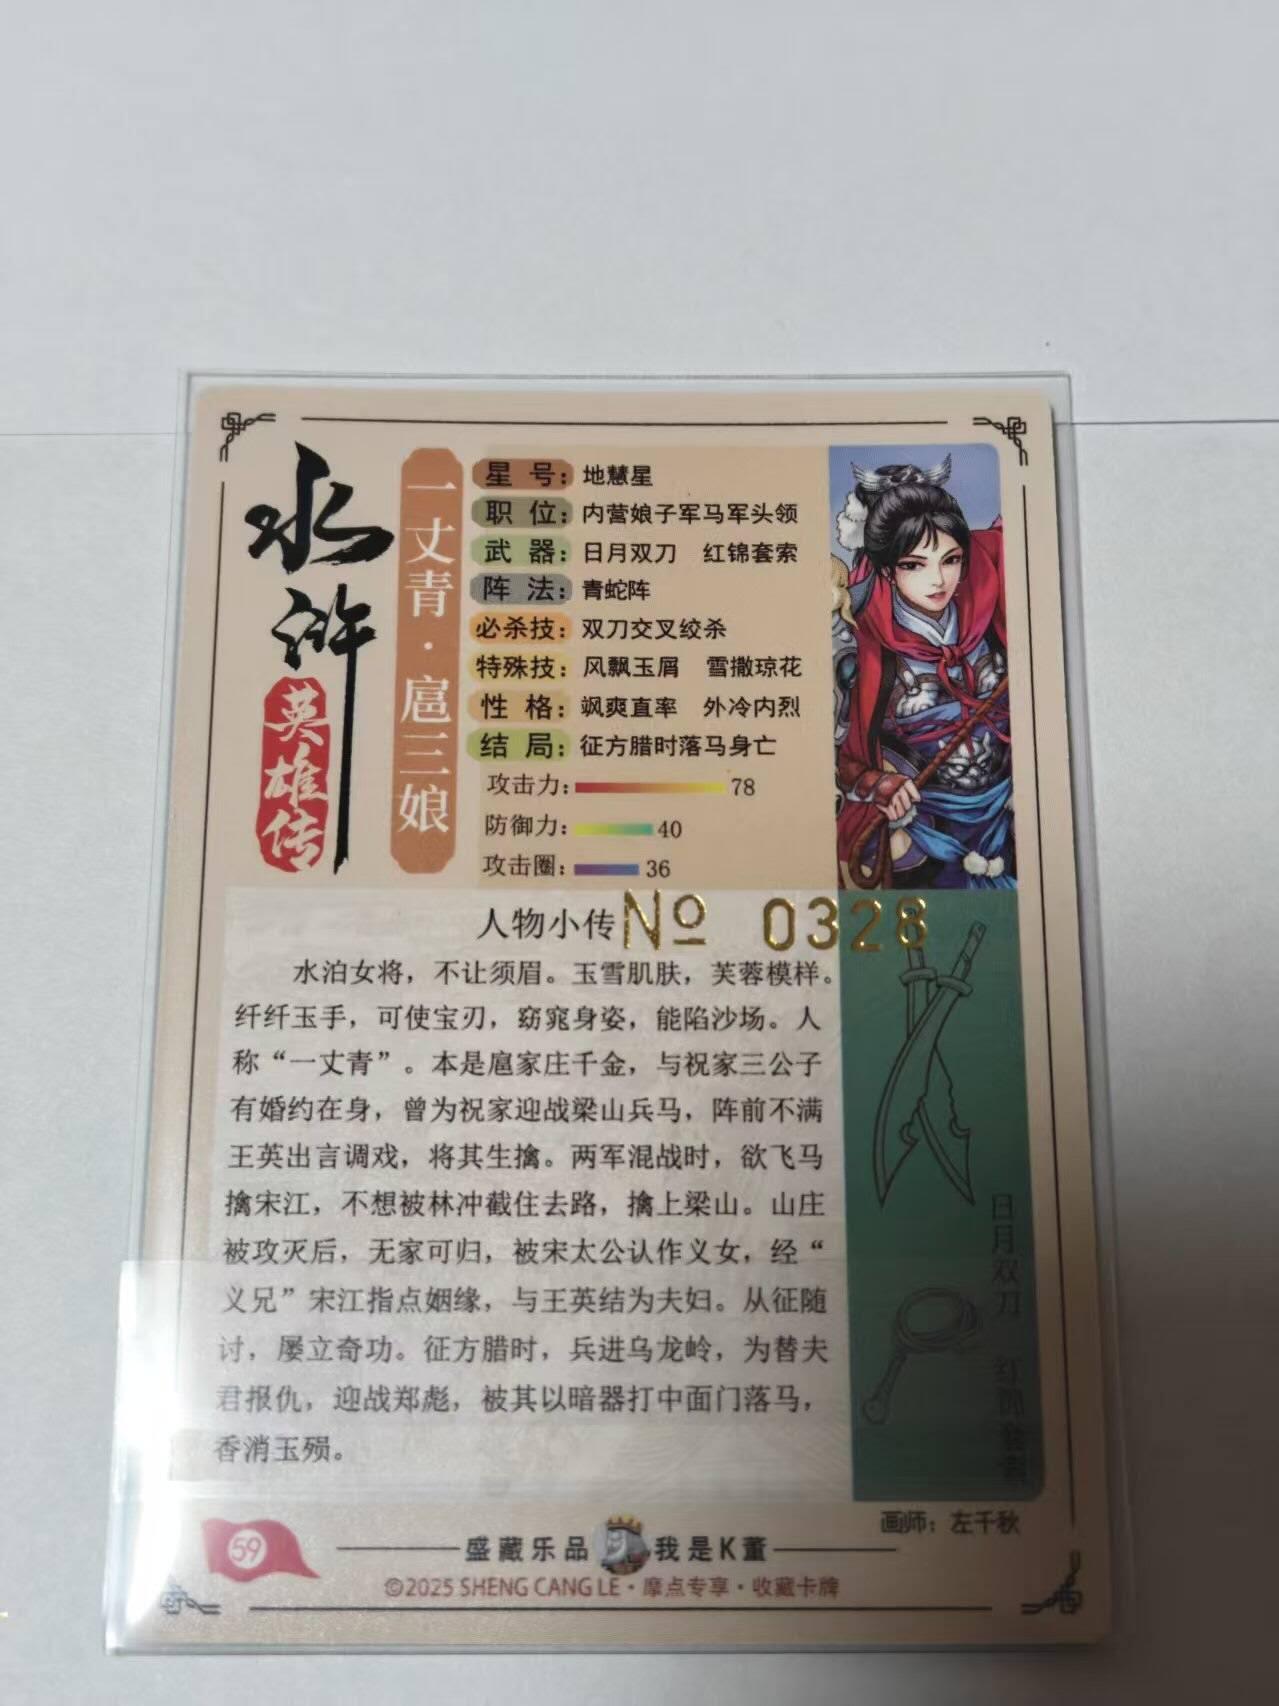 水浒
英雄传
一丈青·扈三娘
星号：地慧星
职位：内营娘子军马军头领
武器：日月双刀 红锦套索
阵法：青蛇阵
必杀技：双刀交叉绞杀
特殊技：风飘玉屑 雪撒琼花
性格：飒爽直率 外冷内烈
结局：征方腊时落马身亡
攻击力：78
防御力：40
攻击圈：36
人物小传
№ 0328
水泊女将，不让须眉。玉雪肌肤，芙蓉模样。
纤纤玉手，可使宝刃，窈窕身姿，能陷沙场。人
称“一丈青”。本是扈家庄千金，与祝家三公子
有婚约在身，曾为祝家迎战梁山兵马，阵前不满
王英出言调戏，将其生擒。两军混战时，欲飞马
擒宋江，不想被林冲截住去路，擒上梁山。山庄
被攻灭后，无家可归，被宋太公认作义女，经“
义兄”宋江指点姻缘，与王英结为夫妇。从征随
讨，屡立奇功。征方腊时，兵进乌龙岭，为替夫
君报仇，迎战郑彪，被其以暗器打中面门落马，
香消玉殒。
日月双刀 红锦套索
画师：左千秋
59
盛藏乐品 我是K董
©2025 SHENG CANG LE·摩点专享·收藏卡牌